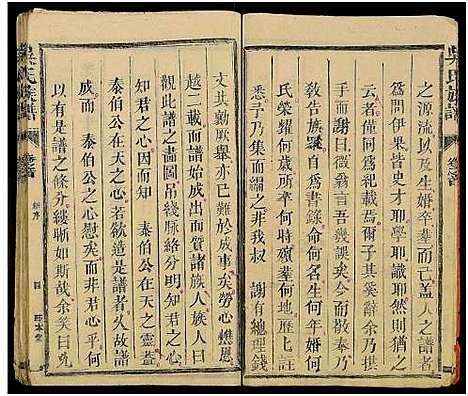 吳氏族譜
卷之首
之源流以及生婚卒葬而已蓋人之譜者
為問伊果皆史才耶學耶識耶然猶之
云者然予又聞之矣今爾子其然余乃棋
手而謝曰微翁言吾幾誤矣今而敢奉乃
告族自為書錄命何名生何年婚何
氏榮耀何時殯葬何地歷七註
悉予乃集而編之非我叔 謝有總理錢
文共勷厥舉亦已難於成事矣勞心憔思
越二載而譜始成出而質諸族人族人曰
觀此之譜圖吊綫脉絡分明知君之心
知君之心因而 泰伯公在天之靈蓋
泰伯公在天之心若欲造君者久故譜
成而 泰伯之心慰矣而非君心乎何
以有是譜之條分縷晰如斯哉余笑曰兎
吳氏族譜
卷之首
新序
四